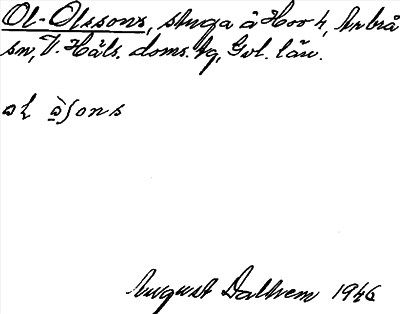 Ol-Olssons, stuga å Hoo 4, Arbrå
sn, V. Häls. doms. hg, Gvl. län.
ol ȯ̱̀ʃons
August Dalhem 1946